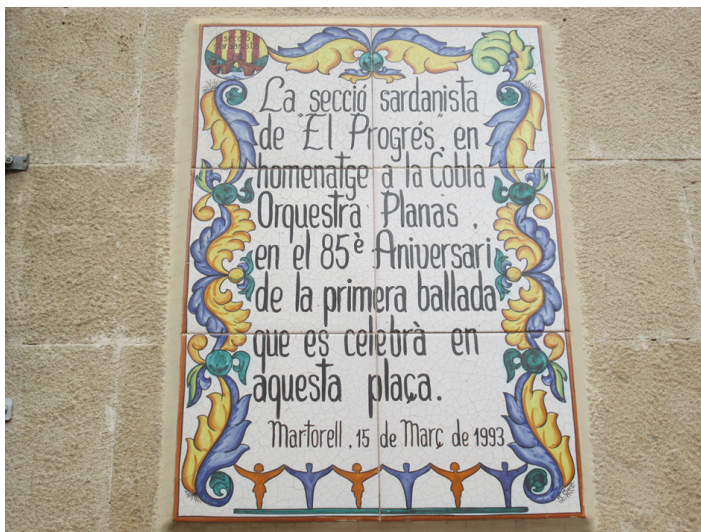 secció
sardanista
La secció sardanista
de "El Progrés", en
homenatge a la Cobla
Orquestra Planas,
en el 85è Aniversari
de la primera ballada
que es celebrà en
aquesta plaça.
Martorell, 15 de Març de 1993